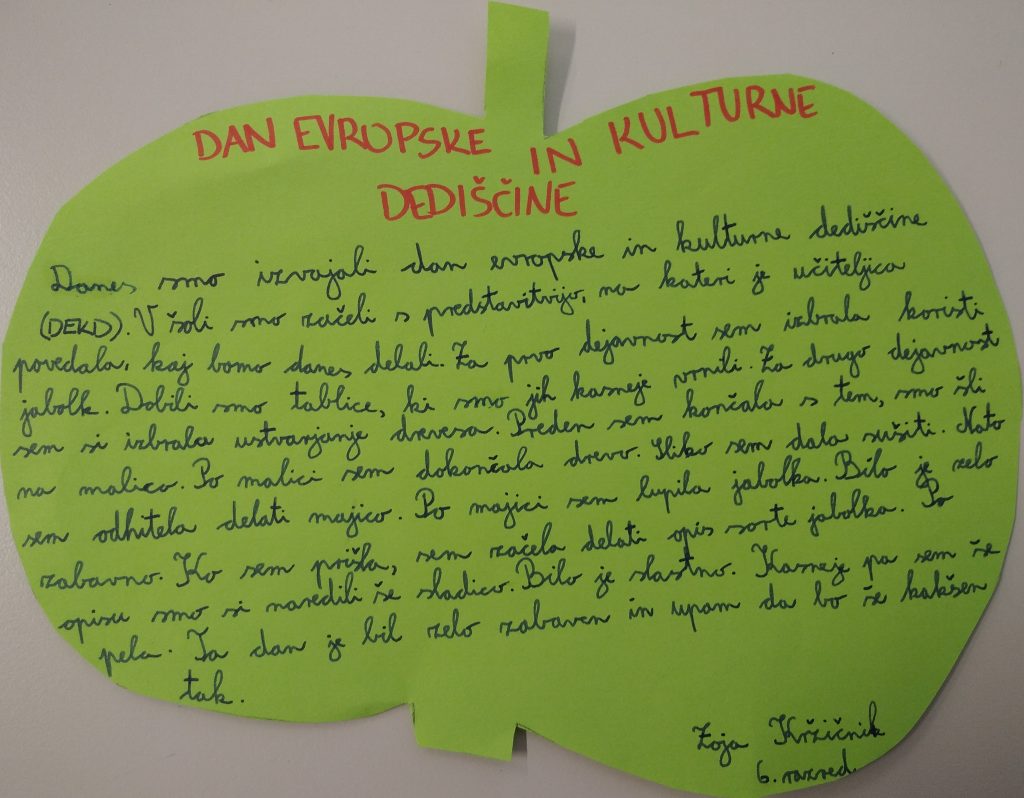 DAN EVROPSKE IN KULTURNE
DEDIŠČINE
Danes smo izvajali dan evropske in kulturne dediščine
(DEKD). V šoli smo začeli s predstavitvijo, na kateri je učiteljica
povedala, kaj bomo danes delali. Za prvo dejavnost sem izbrala koristi
jabolk. Dobili smo tablice, ki smo jih kasneje vrnili. Za drugo dejavnost
sem si izbrala ustvarjanje drevesa. Preden sem končala s tem, smo šli
na malico. Po malici sem dokončala drevo. Sliko sem dala sušiti. Nato
sem odhitela delati majico. Po majici sem lupila jabolka. Bilo je zelo
zabavno. Ko sem prišla, sem začela delati opis sorte jabolka. Po
opisu smo si naredili še sladico. Bilo je slastno. Kasneje pa sem še
pela. Ta dan je bil zelo zabaven in upam da bo še kakšen
tak.
Zoja Kržičnik
6. razred